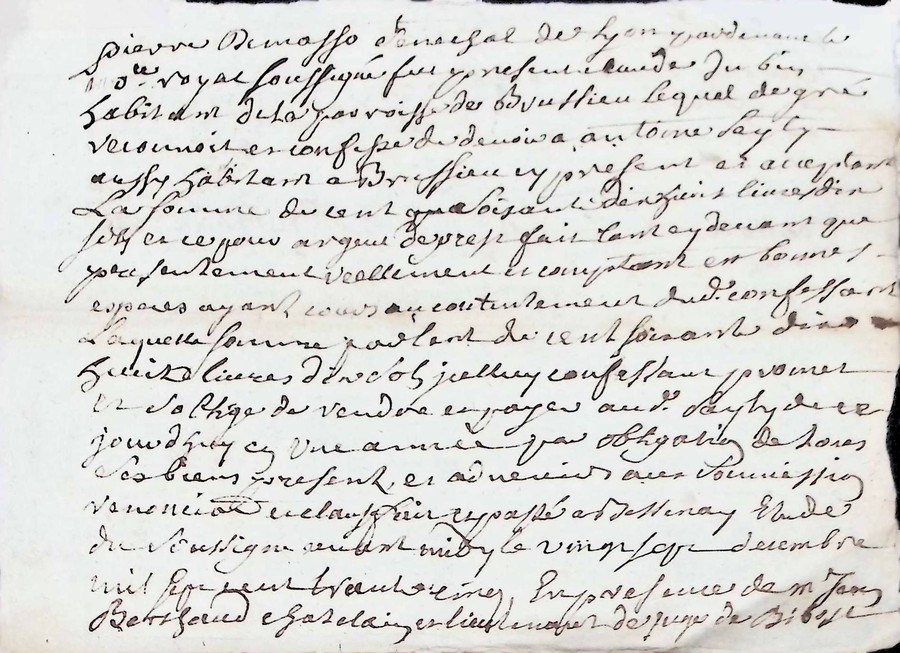 pierre Demasso Senechal de Lyon pardevant le
no.re royal soussigné fut present claude Dubin
habitant de la parroisse de Brussieu lequel de gré
reconnoit et confesse de devoir a antoine Sayly
aussy habitant a Brussieu cy present et acceptant
La somme de cent soisante dix huit livres dix
sols et ce pour argent de prest fait tant cy devant que
presentement reellement et comptant en bonnes
especes ayant cours au contentement dud. confessant
Laquelle somme de cent soisante dix
huict livres dix sols jcelluy confessant promet
et soblige de rendre et payer aud. Sayly de ce
jourdhuy en une année par obligation de tous
ses biens present et advenir avec soumission
renonciation et clauses fait et passé a Bessenay Etude
du soussigné avant midy le vingt sept decembre
mil sept cent trente cinq En presence de mr Jean
Berthaud chatelain et lieutenant de juge de Bibost